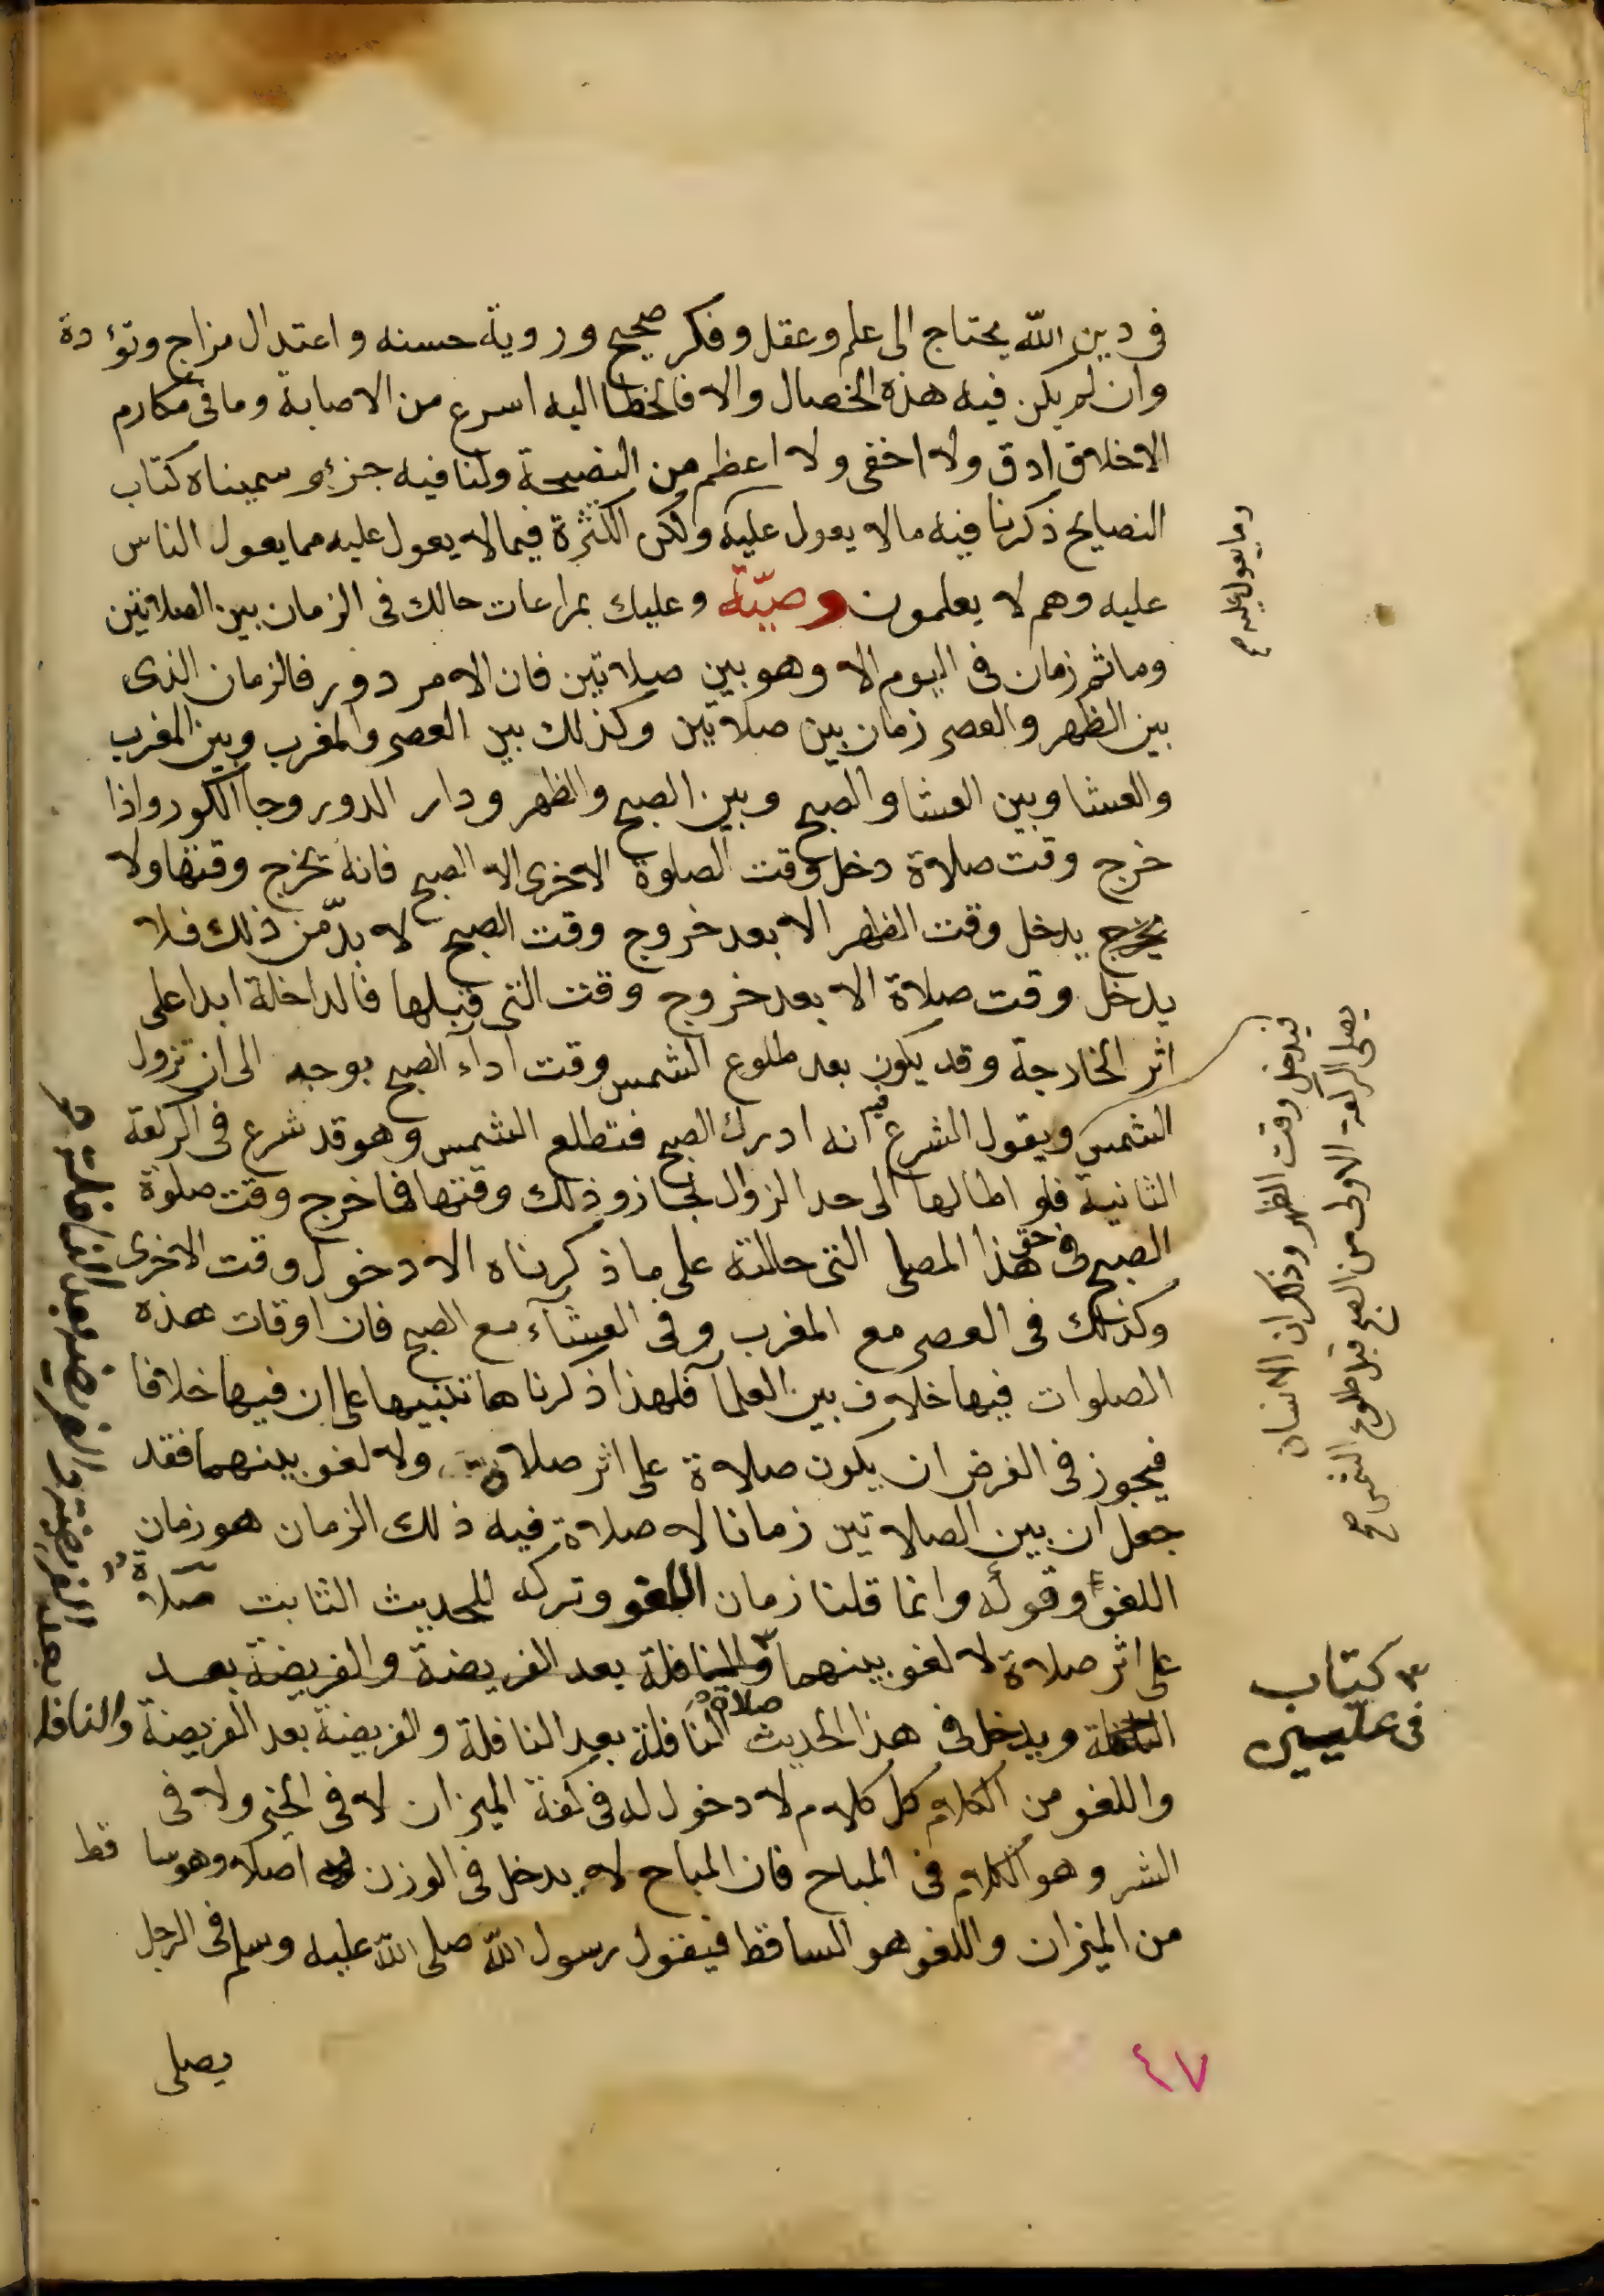 في دين الله يحتاج الى علم وعقل وفكر صحيح وروية حسنه واعتدال مزاج وتؤدة
وان لم يكن فيه هذه الخصال والا فالخطا اليه اسرع من الاصابة وما في مكارم
الاخلاق ادق ولا اخفى ولا اعظم من النصيحة ولنا فيه جزء سميناه كتاب
النصايح ذكرنا فيه مالا يعول عليه ولكن الكثرة فيما لا يعول عليه مما يعول الناس
عليه وهم لا يعلمون وصيّة وعليك بمراعات حالك في الزمان بين الصلاتين
وما ثم زمان في اليوم الا وهو بين صلاتين فان الامر دور فالزمان الذى
بين الظهر والعصر زمان بين صلاتين وكذلك بين العصر والمغرب وبين المغرب
والعشا وبين العشا والصبح وبين الصبح والظهر ودار الدور وجا الكور واذا
خرج وقت صلاة دخل وقت الصلوة الاخرى الا الصبح فانه يخرج وقتها ولا
يخرج يدخل وقت الظهر الا بعد خروج وقت الصبح لا بدّ من ذلك فلا
يدخل وقت صلاة الا بعد خروج وقت التى قبلها فالداخلة ابدا على
اثر الخارجة وقد يكون بعد طلوع الشمس وقت اداء الصبح بوجه الى ان تزول
الشمس ويقول الشرع فيه انه ادرك الصبح فتطلع الشمس وهو قد شرع في الركعة
الثانية فلو اطالها الى حد الزوال لجاز وذلك وقتها فما خرج وقت صلوة
الصبح في حق هذا المصلى التى حالته على ما ذكرناه الا دخول وقت الاخرى
وكذلك في العصر مع المغرب وفي العشآء مع الصبح فان اوقات هذه
الصلوات فيها خلاف بين العلما فلهذا ذكرناها تنبيها على ان فيها خلافا
فيجوز في الفرض ان يكون صلاة على اثر صلاة ولا لغو بينهما فقد
جعل ان بين الصلاتين زمانا لا صلاة فيه ذلك الزمان هو زمان
اللغو وقوله وانما قلنا زمان اللغو وتركه للحديث الثابت صلاة
على اثر صلاة لا لغو بينهما والنافلة بعد الفريضة والفريضة بعد
النافلة ويدخل في هذا الحديث صلاة النافلة بعد النافلة والفريضة بعد الفريضة والنافلة
واللغو من الكلام كل كلام لا دخول له في كفة الميزان لا في الخير ولا في
الشر وهو الكلام في المباح فان المباح لا يدخل في الوزن اصلا وهو ساقط
من الميزان واللغو هو الساقط فيقول رسول الله صلى الله عليه وسلم في الرجل
يصلى
٤٧
وما يعول عليه صح
فيدخل وقت الظهر وذكر ان الانسان
يصلى الركعة الاولى من الصبح قبل طلوع الشمس صح
كتاب
في عليين
بعد الفريضة والفريضة بعد النافلة